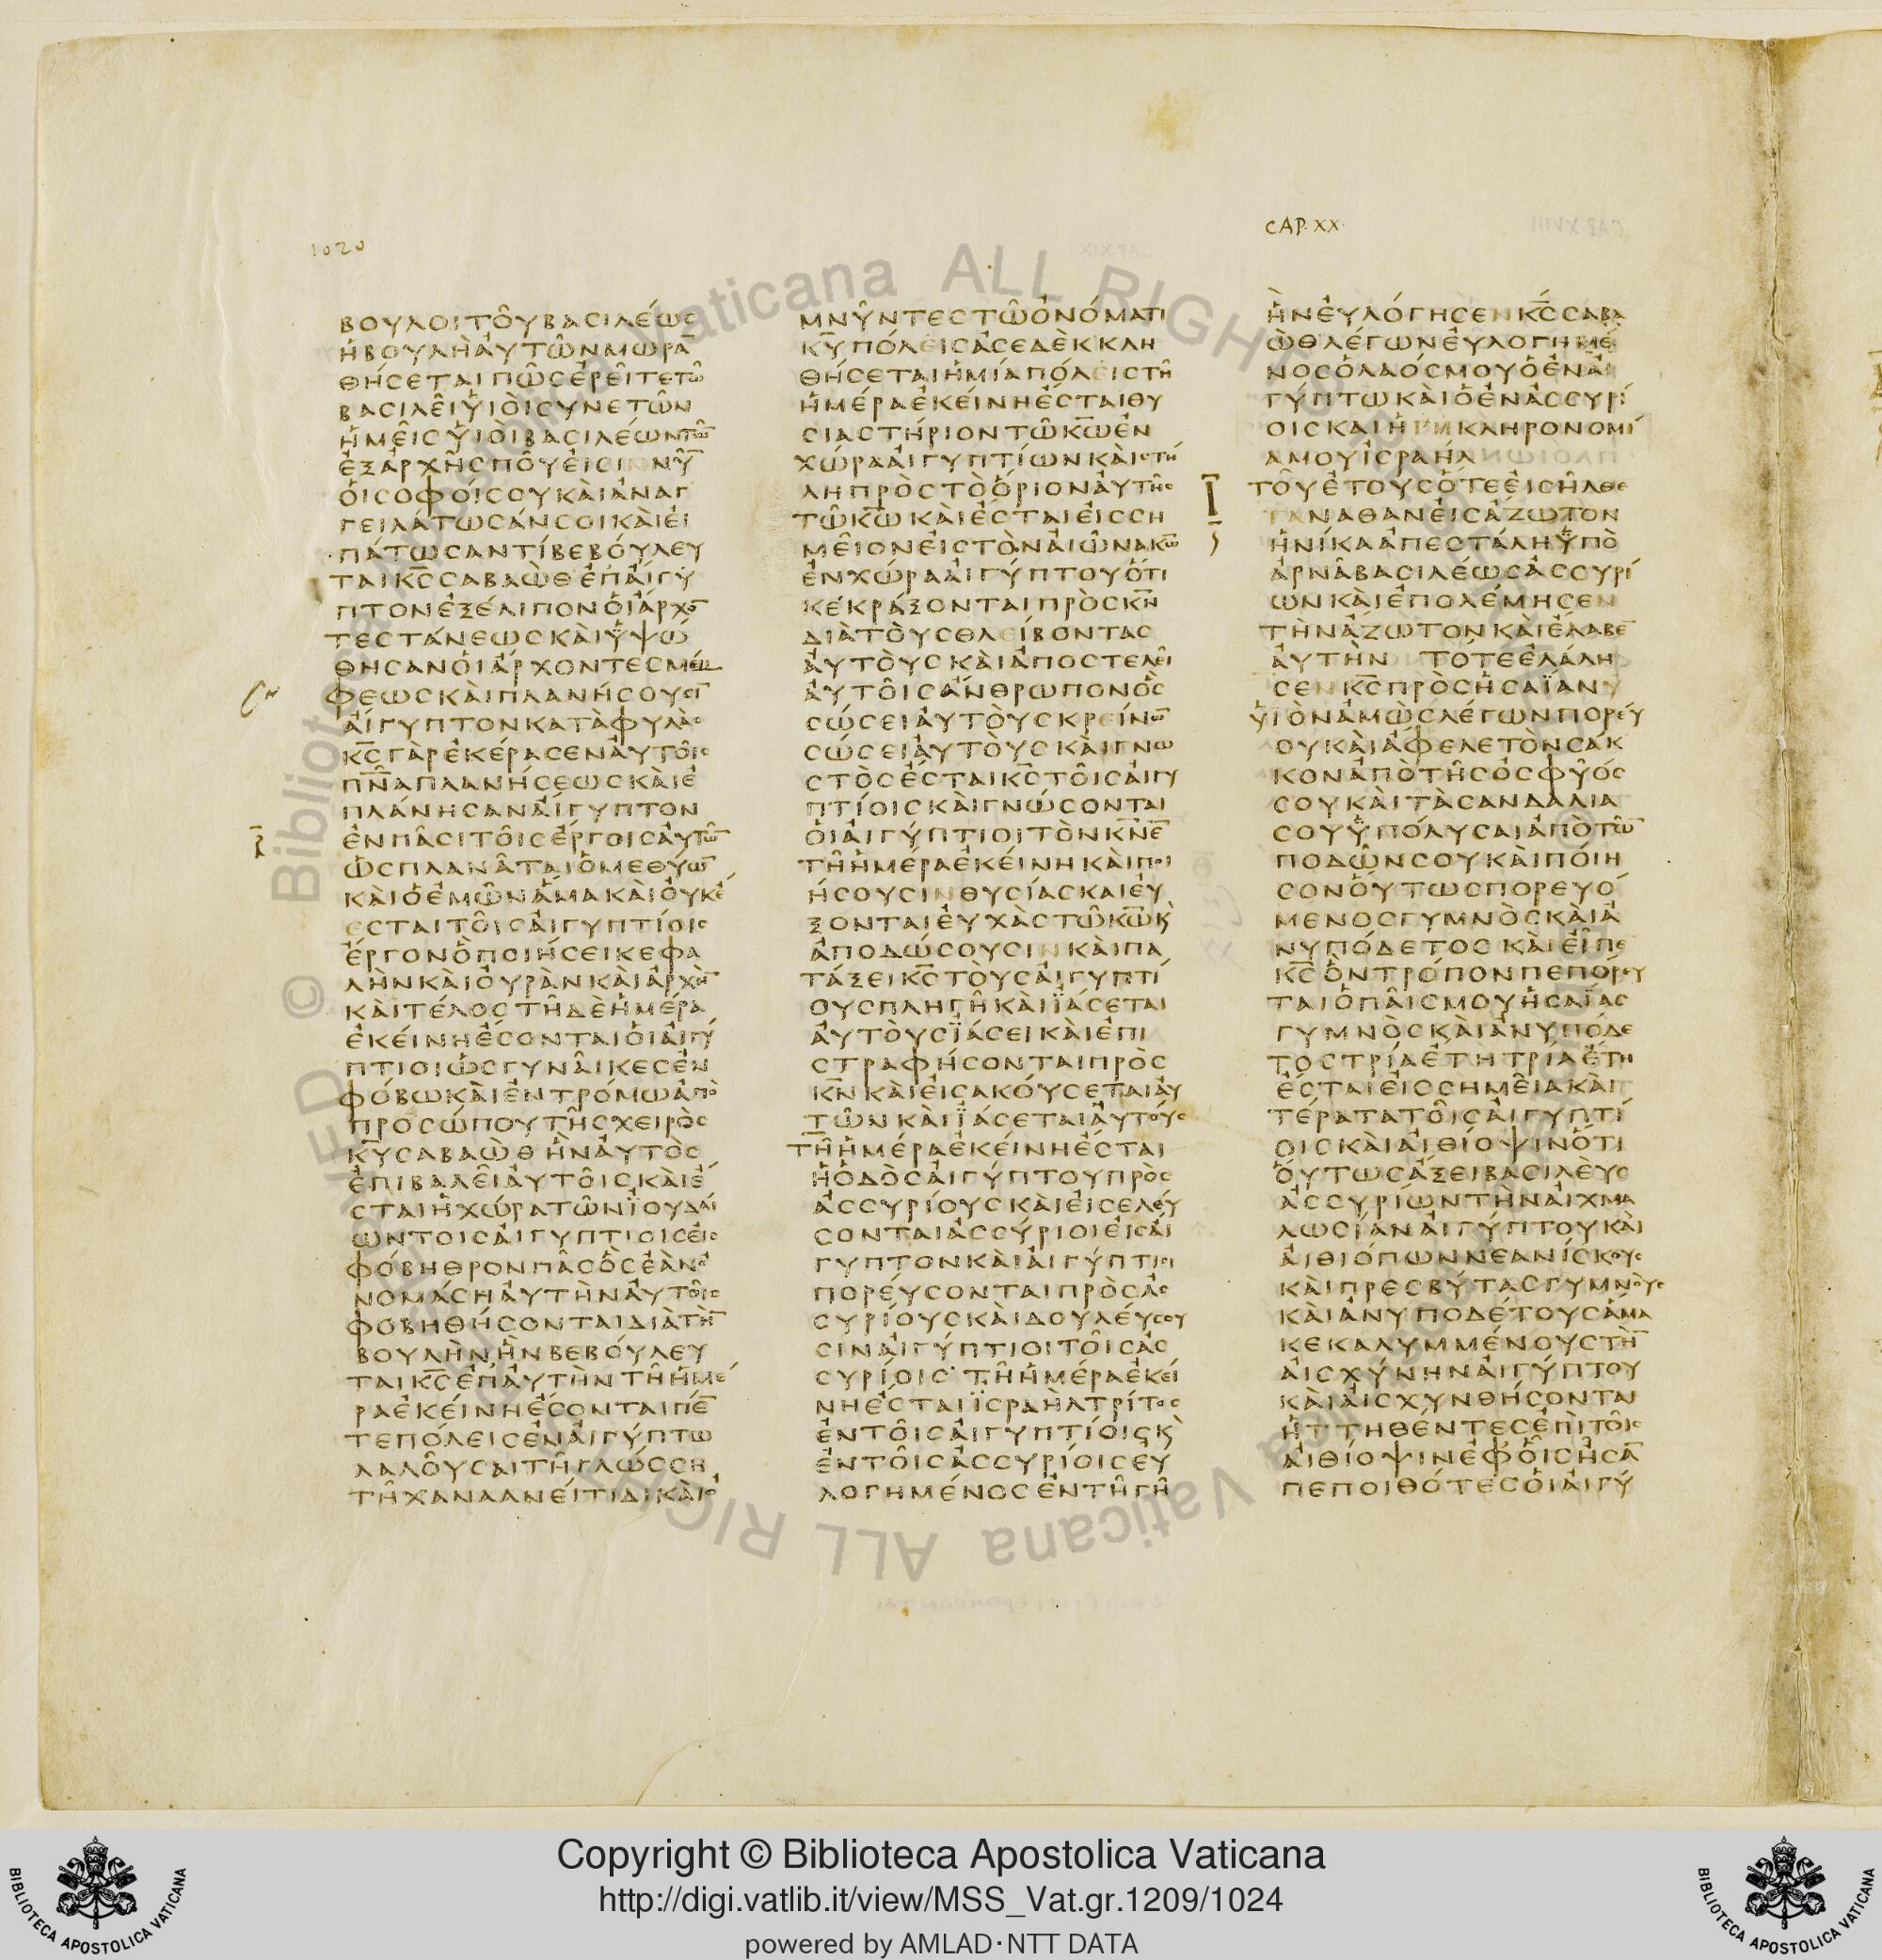 1020
ΒΟΥΛΟΙΤΟΥΒΑϹΙΛΕΩϹ
ΗΒΟΥΛΗΑΥΤΩΝΜΩΡΑ̅
ΘΗϹΕΤΑΙΠΩϹΕΡΕΙΤΕΤΩ̅
ΒΑϹΙΛΕΙΥΙΟΙϹΥΝΕΤΩΝ
ΗΜΕΙϹΥΙΟΙΒΑϹΙΛΕΩΝΤΩ̅
ΕΞΑΡΧΗϹΠΟΥΕΙϹΙΝΝΥ̅
ΟΙϹΟΦΟΙϹΟΥΚΑΙΑΝΑΓ
ΓΕΙΛΑΤΩϹΑΝϹΟΙΚΑΙΕΙ
ΠΑΤΩϹΑΝΤΙΒΕΒΟΥΛΕΥ
ΤΑΙΚ̅Ϲ̅ϹΑΒΑΩΘΕΠΑΙΓΥ
ΠΤΟΝΕΞΕΛΙΠΟΝΟΙΑΡΧΟ̅
ΤΕϹΤΑΝΕΩϹΚΑΙΥΨΩ
ΘΗϹΑΝΟΙΑΡΧΟΝΤΕϹΜΕΜ
ΦΕΩϹΚΑΙΠΛΑΝΗϹΟΥϹΙ̅
ΑΙΓΥΠΤΟΝΚΑΤΑΦΥΛΑϹ
Κ̅Ϲ̅ΓΑΡΕΚΕΡΑϹΕΝΑΥΤΟΙϹ
Π̅Ν̅ΑΠΛΑΝΗϹΕΩϹΚΑΙΕ
ΠΛΑΝΗϹΑΝΑΙΓΥΠΤΟΝ
ΕΝΠΑϹΙΤΟΙϹΕΡΓΟΙϹΑΥΤΩ̅
ΩϹΠΛΑΝΑΤΑΙΟΜΕΘΥΩ̅
ΚΑΙΟΕΜΩΝΑΜΑΚΑΙΟΥΚΕ
ΕϹΤΑΙΤΟΙϹΑΙΓΥΠΤΙΟΙϹ
ΕΡΓΟΝΟΠΟΙΗϹΕΙΚΕΦΑ
ΛΗΝΚΑΙΟΥΡΑΝΚΑΙΑΡΧΗ̅
ΚΑΙΤΕΛΟϹΤΗΔΕΗΜΕΡΑ
ΕΚΕΙΝΗΕϹΟΝΤΑΙΟΙΑΙΓΥ
ΠΤΙΟΙΩϹΓΥΝΑΙΚΕϹΕΝ
ΦΟΒΩΚΑΙΕΝΤΡΟΜΩΑΠΟ
ΠΡΟϹΩΠΟΥΤΗϹΧΕΙΡΟϹ
Κ̅Υ̅ϹΑΒΑΩΘΗΝΑΥΤΟϹ
ΕΠΙΒΑΛΕΙΑΥΤΟΙϹΚΑΙΕ
ϹΤΑΙΗΧΩΡΑΤΩΝΙΟΥΔΑΙ
ΩΝΤΟΙϹΑΙΓΥΠΤΙΟΙϹΕΙϹ
ΦΟΒΗΘΡΟΝΠΑϹΟϹΕΑΝΟ
ΝΟΜΑϹΗΑΥΤΗΝΑΥΤΟΙϹ
ΦΟΒΗΘΗϹΟΝΤΑΙΔΙΑΤΗ̅
ΒΟΥΛΗΝΗΝΒΕΒΟΥΛΕΥ
ΤΑΙΚ̅Ϲ̅ΕΠΑΥΤΗΝΤΗΗΜΕ
ΡΑΕΚΕΙΝΗΕϹΟΝΤΑΙΠΕ̅
ΤΕΠΟΛΕΙϹΕΝΑΙΓΥΠΤΩ
ΛΑΛΟΥϹΑΙΤΗΓΛΩϹϹΗ
ΤΗΧΑΝΑΑΝΕΙΤΙΔΙΚΑΙΟ
ΜΝΥΝΤΕϹΤΩΟΝΟΜΑΤΙ
Κ̅Υ̅ΠΟΛΕΙϹΑϹΕΔΕΚΚΛΗ
ΘΗϹΕΤΑΙΗΜΙΑΠΟΛΕΙϹΤΗ
ΗΜΕΡΑΕΚΕΙΝΗΕϹΤΑΙΘΥ
ϹΙΑϹΤΗΡΙΟΝΤΩΚ̅Ω̅ΕΝ
ΧΩΡΑΑΙΓΥΠΤΙΩΝΚΑΙϹΤΗ
ΛΗΠΡΟϹΤΟΟΡΙΟΝΑΥΤΗϹ
ΤΩΚ̅Ω̅ΚΑΙΕϹΤΑΙΕΙϹϹΗ
ΜΕΙΟΝΕΙϹΤΟΝΑΙΩΝΑΚ̅Ω̅
ΕΝΧΩΡΑΑΙΓΥΠΤΟΥΟΤΙ
ΚΕΚΡΑΞΟΝΤΑΙΠΡΟϹΚ̅Ν̅
ΔΙΑΤΟΥϹΘΛΕΙΒΟΝΤΑϹ
ΑΥΤΟΥϹΚΑΙΑΠΟϹΤΕΛΕΙ
ΑΥΤΟΙϹΑΝΘΡΩΠΟΝΟϹ
ϹΩϹΕΙΑΥΤΟΥϹΚΡΕΙΝΩ̅
ϹΩϹΕΙΑΥΤΟΥϹΚΑΙΓΝΩ
ϹΤΟϹΕϹΤΑΙΚ̅Ϲ̅ΤΟΙϹΑΙΓΥ
ΠΤΙΟΙϹΚΑΙΓΝΩϹΟΝΤΑΙ
ΟΙΑΙΓΥΠΤΙΟΙΤΟΝΚ̅Ν̅Ε̅
ΤΗΗΜΕΡΑΕΚΕΙΝΗΚΑΙΠΟΙ
ΗϹΟΥϹΙΝΘΥϹΙΑϹΚΑΙΕΥ
ΞΟΝΤΑΙΕΥΧΑϹΤΩΚ̅Ω̅Κ
ΑΠΟΔΩϹΟΥϹΙΝΚΑΙΠΑ
ΤΑΞΕΙΚ̅Ϲ̅ΤΟΥϹΑΙΓΥΠΤΙ
ΟΥϹΠΛΗΓΗΚΑΙΪΑϹΕΤΑΙ
ΑΥΤΟΥϹΪΑϹΕΙΚΑΙΕΠΙ
ϹΤΡΑΦΗϹΟΝΤΑΙΠΡΟϹ
Κ̅Ν̅ΚΑΙΕΙϹΑΚΟΥϹΕΤΑΙΑΥ
ΤΩΝΚΑΙΪΑϹΕΤΑΙΑΥΤΟΥϹ
ΤΗΗΜΕΡΑΕΚΕΙΝΗΕϹΤΑΙ
ΗΟΔΟϹΑΙΓΥΠΤΟΥΠΡΟϹ
ΑϹϹΥΡΙΟΥϹΚΑΙΕΙϹΕΛΕΥ
ϹΟΝΤΑΙΑϹϹΥΡΙΟΙΕΙϹΑΙ
ΓΥΠΤΟΝΚΑΙΑΙΓΥΠΤΙΟΙ
ΠΟΡΕΥϹΟΝΤΑΙΠΡΟϹΑϹ
ϹΥΡΙΟΥϹΚΑΙΔΟΥΛΕΥϹΟΥ
ϹΙΝΑΙΓΥΠΤΙΟΙΤΟΙϹΑϹ
ϹΥΡΙΟΙϹΤΗΗΜΕΡΑΕΚΕΙ
ΝΗΕϹΤΑΙΪϹΡΑΗΛΤΡΙΤΟϹ
ΕΝΤΟΙϹΑΙΓΥΠΤΙΟΙϹΚ
ΕΝΤΟΙϹΑϹϹΥΡΙΟΙϹΕΥ
ΛΟΓΗΜΕΝΟϹΕΝΤΗΓΗ
CAP. XX.
ΗΝΕΥΛΟΓΗϹΕΝΚ̅Ϲ̅ϹΑΒΑ
ΩΘΛΕΓΩΝΕΥΛΟΓΗΜΕ
ΝΟϹΟΛΑΟϹΜΟΥΟΕΝΑΙ
ΓΥΠΤΩΚΑΙΟΕΝΑϹϹΥΡΙ
ΟΙϹΚΑΙΗ ΚΛΗΡΟΝΟΜΙ
ΑΜΟΥΙϹΡΑΗΛ
ΤΟΥΕΤΟΥϹΟΤΕΕΙϹΗΛΘΕ
ΤΑΝΑΘΑΝΕΙϹΑΖΩΤΟΝ
ΗΝΙΚΑΑΠΕϹΤΑΛΗΥΠΟ
ΑΡΝΑΒΑϹΙΛΕΩϹΑϹϹΥΡΙ
ΩΝΚΑΙΕΠΟΛΕΜΗϹΕΝ
ΤΗΝΑΖΩΤΟΝΚΑΙΕΛΑΒΕ̅
ΑΥΤΗΝ ΤΟΤΕΕΛΑΛΗ
ϹΕΝΚ̅Ϲ̅ΠΡΟϹΗϹΑΪΑΝ
ΥΙΟΝΑΜΩϹΛΕΓΩΝΠΟΡΕΥ
ΟΥΚΑΙΑΦΕΛΕΤΟΝϹΑΚ
ΚΟΝΑΠΟΤΗϹΟϹΦΥΟϹ
ϹΟΥΚΑΙΤΑϹΑΝΔΑΛΙΑ
ϹΟΥΥΠΟΛΥϹΑΙΑΠΟΤΩ̅
ΠΟΔΩΝϹΟΥΚΑΙΠΟΙΗ
ϹΟΝΟΥΤΩϹΠΟΡΕΥΟ
ΜΕΝΟϹΓΥΜΝΟϹΚΑΙΑ
ΝΥΠΟΔΕΤΟϹΚΑΙΕΙΠΕ
Κ̅Ϲ̅ΟΝΤΡΟΠΟΝΠΕΠΟΡΕΥ
ΤΑΙΟΠΑΙϹΜΟΥΗϹΑΪΑϹ
ΓΥΜΝΟϹΚΑΙΑΝΥΠΟΔΕ
ΤΟϹΤΡΙΑΕΤΗΤΡΙΑΕΤΗ
ΕϹΤΑΙΕΙϹϹΗΜΕΙΑΚΑΙ
ΤΕΡΑΤΑΤΟΙϹΑΙΓΥΠΤΙ
ΟΙϹΚΑΙΑΙΘΙΟΨΙΝΟΤΙ
ΟΥΤΩϹΑΞΕΙΒΑϹΙΛΕΥϹ
ΑϹϹΥΡΙΩΝΤΗΝΑΙΧΜΑ
ΛΩϹΙΑΝΑΙΓΥΠΤΟΥΚΑΙ
ΑΙΘΙΟΠΩΝΝΕΑΝΙϹΚΟΥϹ
ΚΑΙΠΡΕϹΒΥΤΑϹΓΥΜΝΟΥϹ
ΚΑΙΑΝΥΠΟΔΕΤΟΥϹΑΜΑ
ΚΕΚΑΛΥΜΜΕΝΟΥϹΤΗ̅
ΑΙϹΧΥΝΗΝΑΙΓΥΠΤΟΥ
ΚΑΙΑΙϹΧΥΝΘΗϹΟΝΤΑΙ
ΗΤΤΗΘΕΝΤΕϹΕΠΙΤΟΙϹ
ΑΙΘΙΟΨΙΝΕΦΟΙϹΗϹΑ̅
ΠΕΠΟΙΘΟΤΕϹΟΙΑΙΓΥ
© Biblioteca Apostolica Vaticana ALL RIGHTS RESERVED
Copyright © Biblioteca Apostolica Vaticana
http://digi.vatlib.it/view/MSS_Vat.gr.1209/1024
powered by AMLAD·NTT DATA
BIBLIOTECA APOSTOLICA VATICANA
BIBLIOTECA APOSTOLICA VATICANA